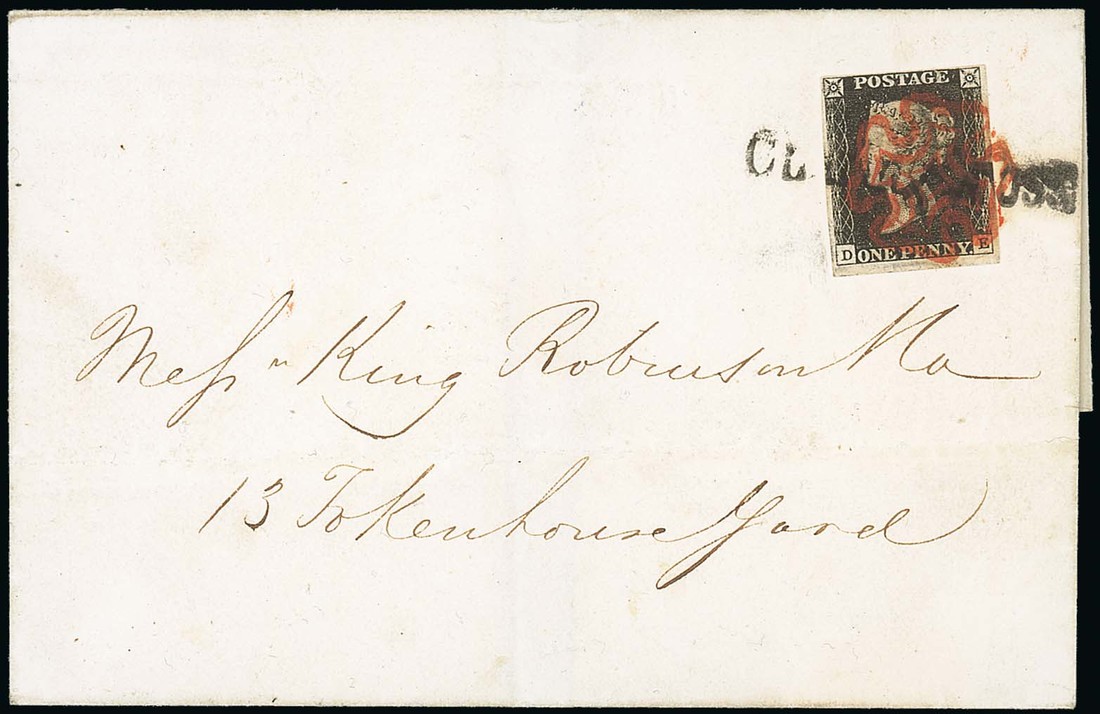 POSTAGE
CL
D ONE PENNY. E
Messrs King Robinson & Co
13 Tokenhouse Yard